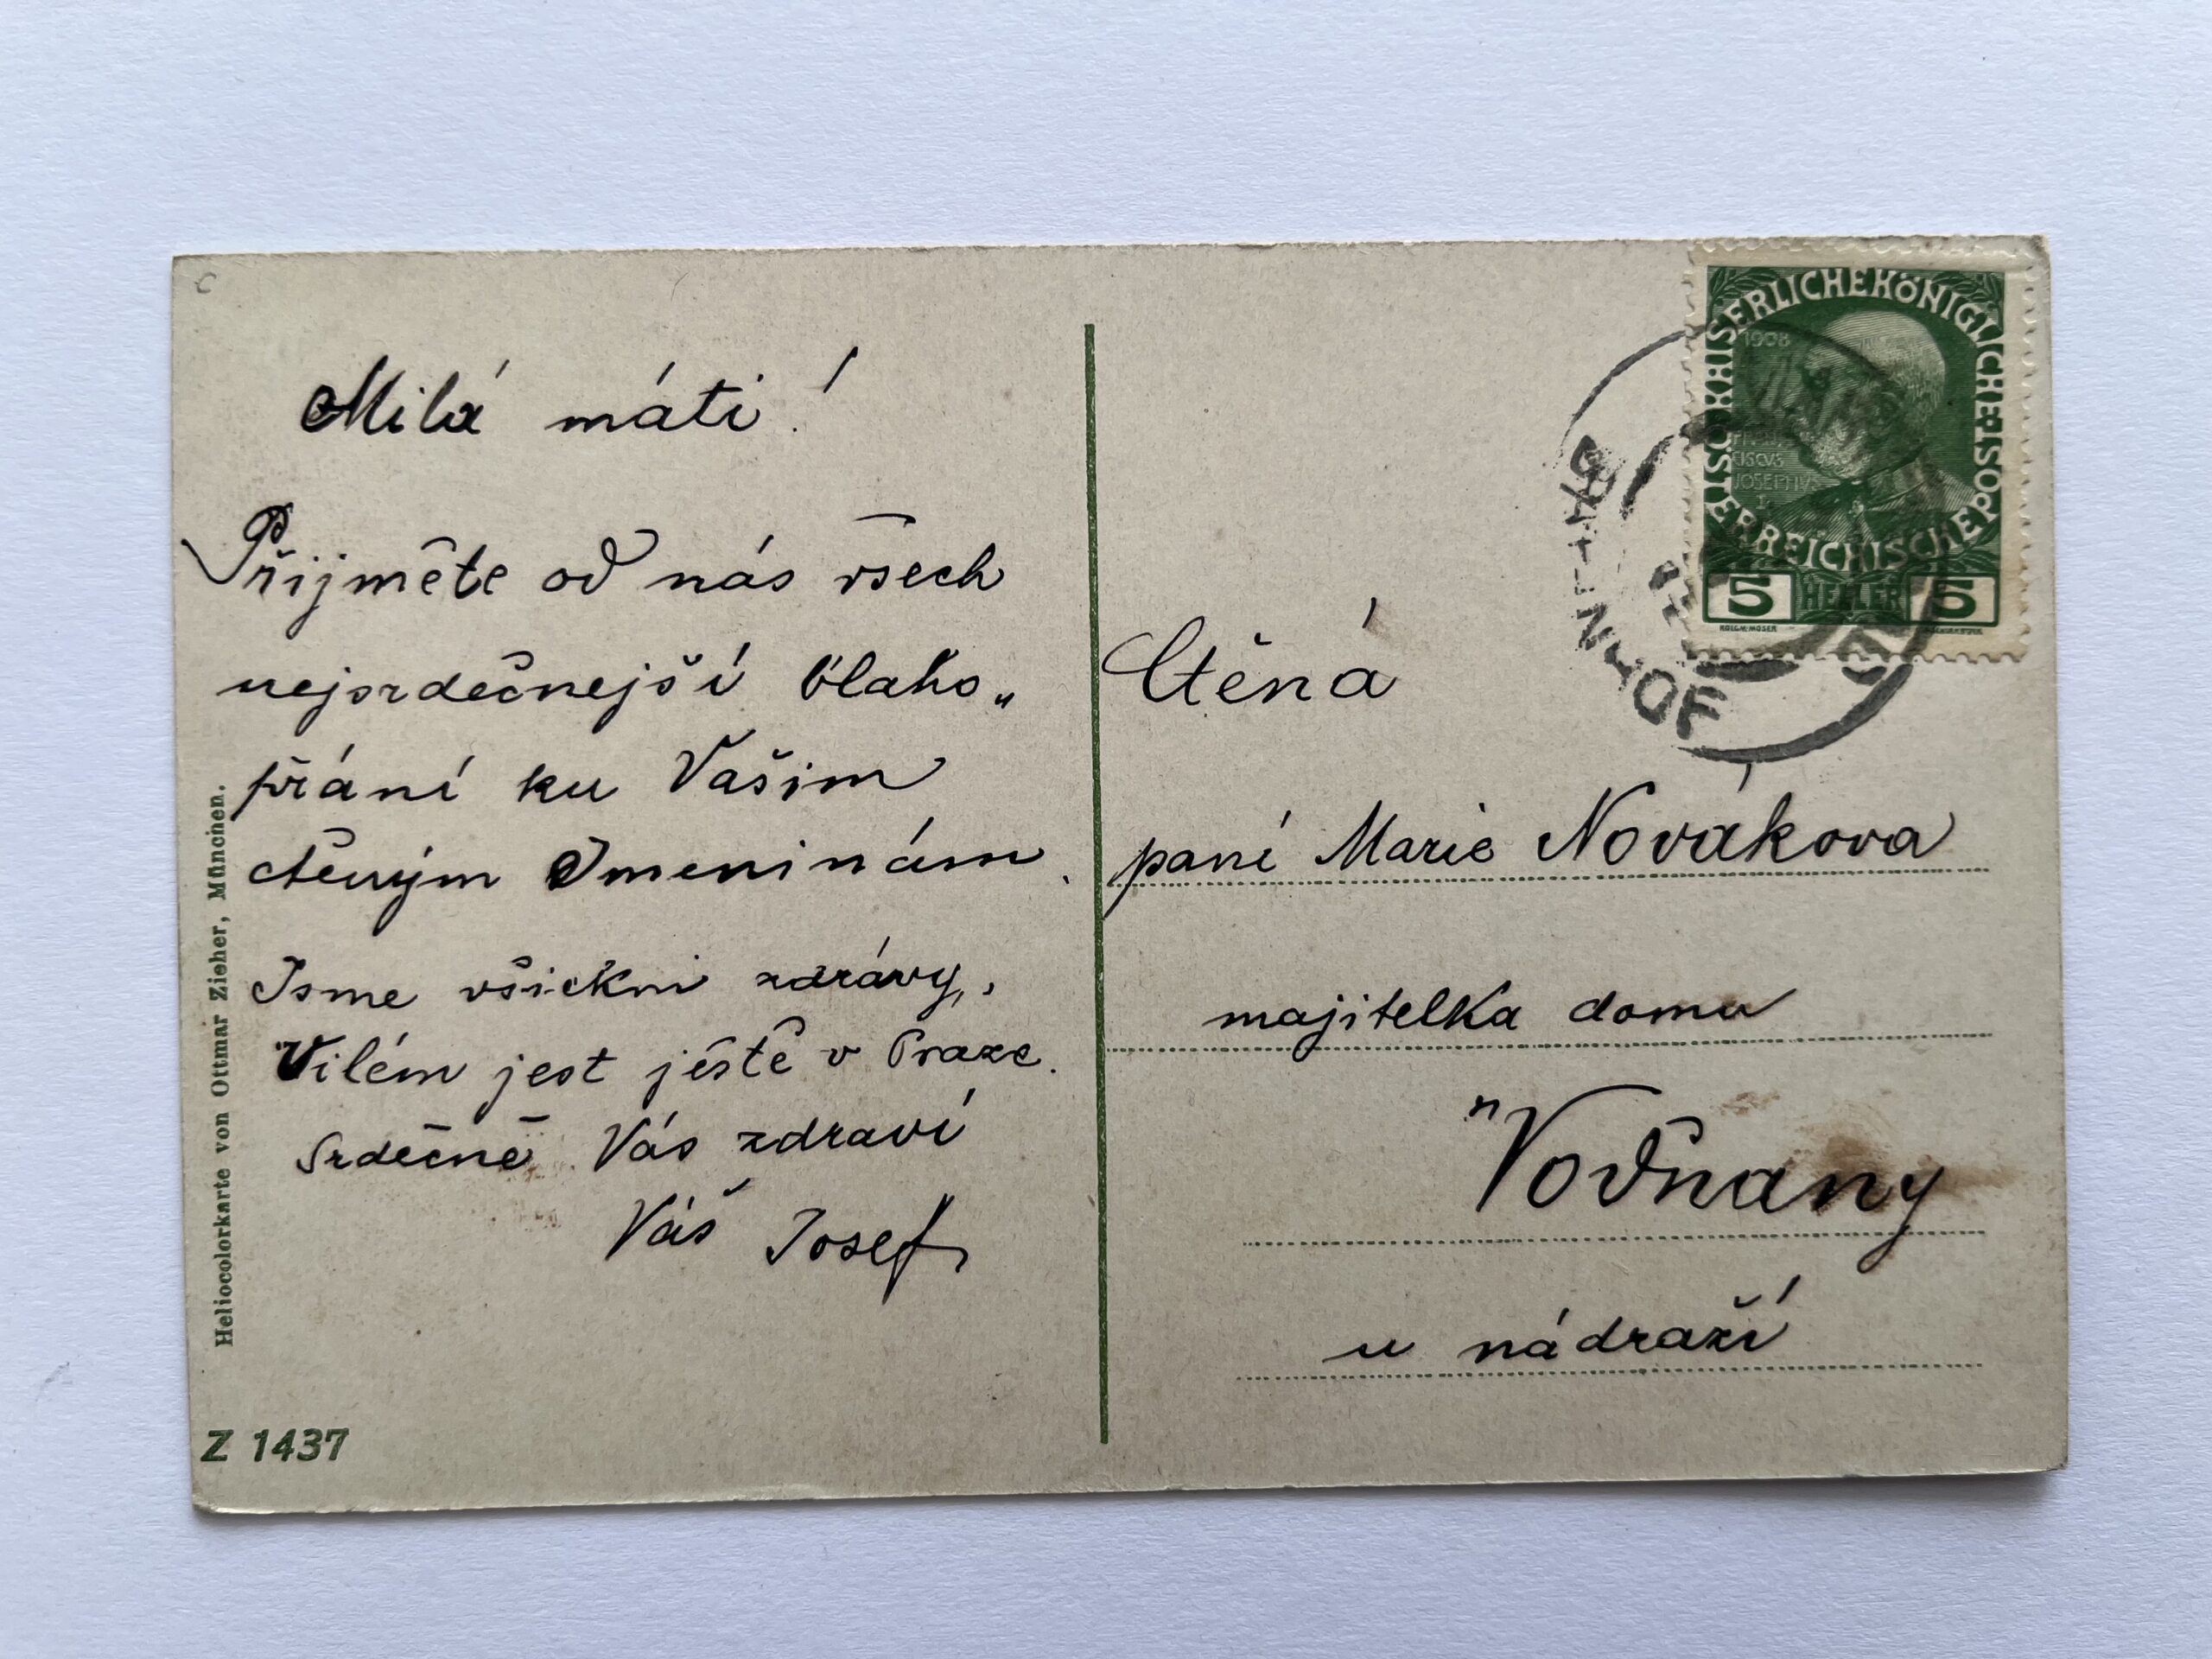 Milá máti!
Přijměte od nás všech
nejsrdečnejší blaho„
přání ku Vašim
ctěným Jmeninám.
Jsme všickni zdrávy,
Vilém jest ještě v Praze.
Srdečně Vás zdraví
Váš Josef
Heliocolorkarte von Ottmar Zieher, München.
Z 1437
KAISERLICHE KÖNIGLICHE ÖSTERREICHISCHE
1908
CISCVS
JOSEPHVS
I.
5 HELLER 5
KOLOM. MOSER
Ctěná
paní Marie Novákova
majitelka domu
"Vodňany
u nádraží